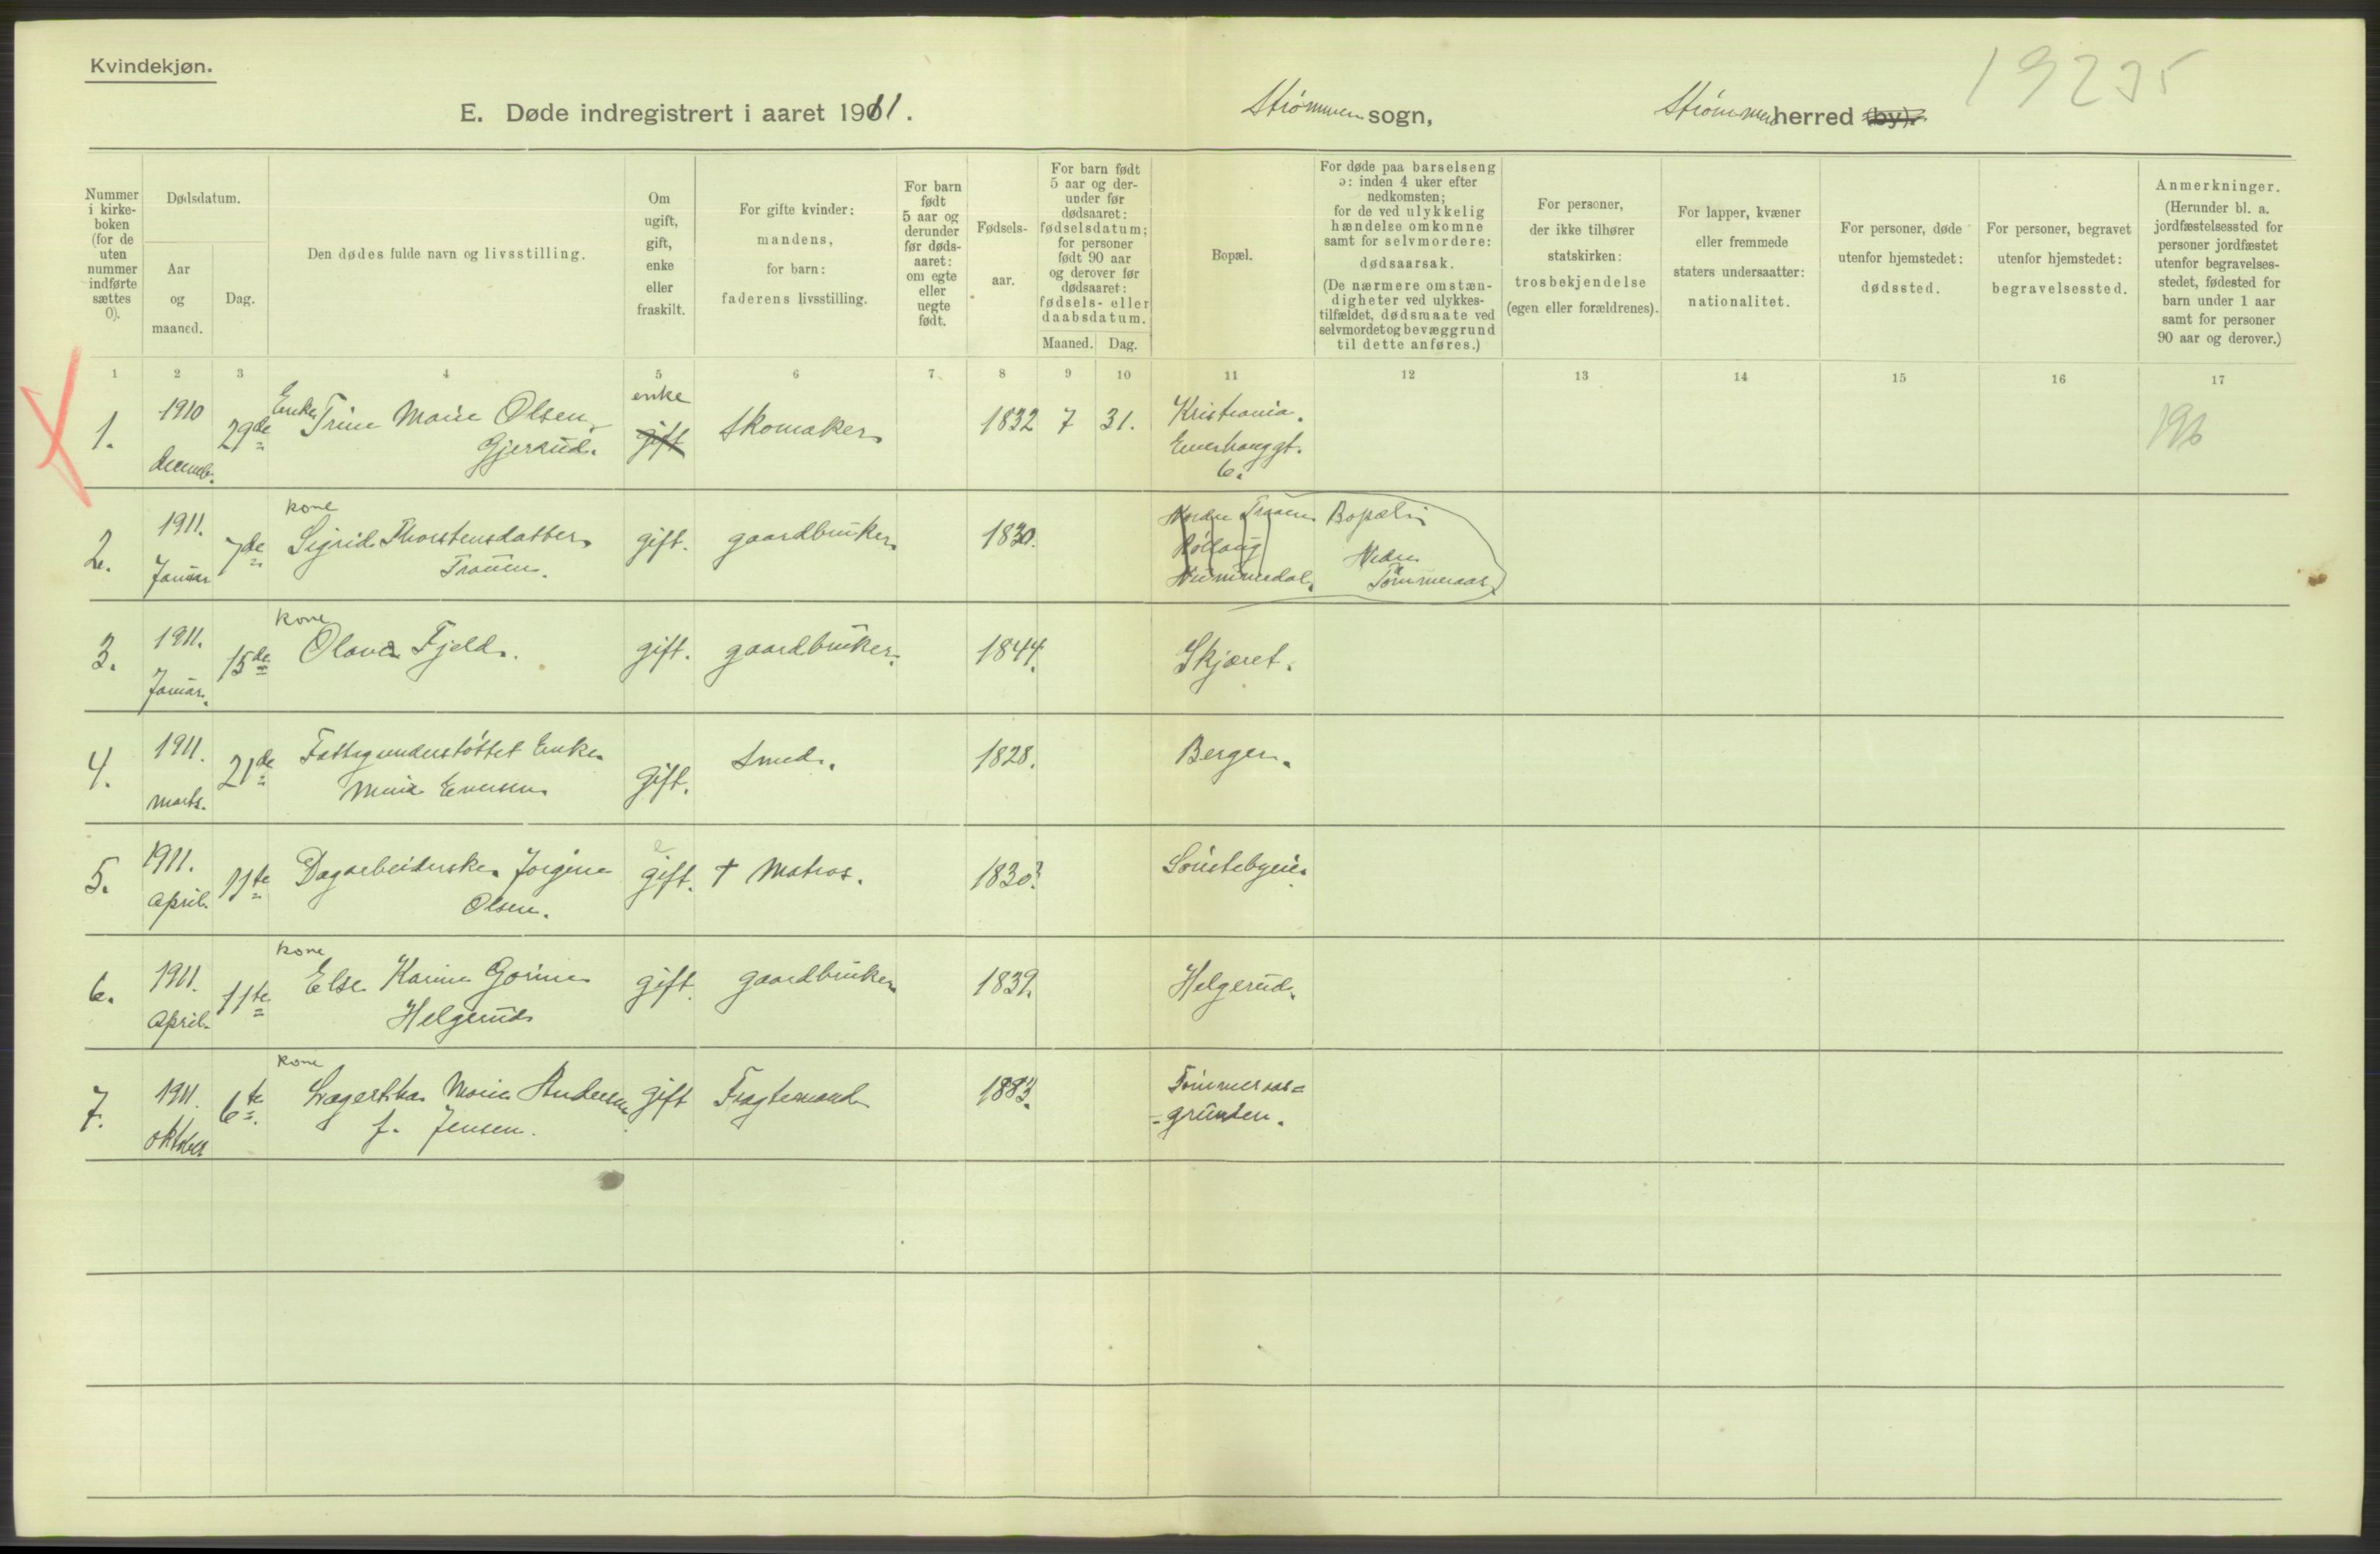 Kvindekjøn.
19235
E. Døde indregistrert i aaret 1911.
Strømmen sogn,
Strømmen herred (by).
Nummer i kirke-boken (for de uten nummer indførte sættes 0).
Dødsdatum.
Aar og maaned.
Dag.
Den dødes fulde navn og livsstilling.
Om ugift, gift, enke eller fraskilt.
For gifte kvinder: mandens, for barn: faderens livsstilling.
For barn født 5 aar og derunder før døds-aaret: om egte eller uegte født.
Fødsels-aar.
For barn født 5 aar og der-under før dødsaaret: fødselsdatum; for personer født 90 aar og derover før dødsaaret: fødsels- eller daabsdatum.
Maaned.
Dag.
Bopæl.
For døde paa barselseng ɔ: inden 4 uker efter nedkomsten; for de ved ulykkelig hændelse omkomne samt for selvmordere: dødsaarsak.
(De nærmere omstæn-digheter ved ulykkes-tilfældet, dødsmaate ved selvmordet og bevæggrund til dette anføres.)
For personer, der ikke tilhører statskirken: trosbekjendelse (egen eller forældrenes).
For lapper, kvæner eller fremmede staters undersaatter: nationalitet.
For personer, døde utenfor hjemstedet: dødssted.
For personer, begravet utenfor hjemstedet: begravelsessted.
Anmerkninger.
(Herunder bl. a. jordfæstelsessted for personer jordfæstet utenfor begravelses-stedet, fødested for barn under 1 aar samt for personer 90 aar og derover.)
1 2 3 4 5 6 7 8 9 10 11 12 13 14 15 16 17
1. 1910 29de Enke Trine Marie Olsen enke Skomaker 1832 7 31. Kristiania.
decemb. Gjersud. gift 6.
2. 1911. 7de kone Sigrid Thorstensdatter gift. gaardbruker 1830. Nordre Traaen Bopæl:
Januar Traaen. Rollaug Nedre
Nummedal. Tømmeraas
3. 1911. 15de kone Olava Fjeld. gift. gaardbruker. 1844. Skjæret.
Januar.
4. 1911. 21de Fattigunderstøttet Enke gift. Smed. 1828. Bergen.
Marts. Maria Evensen
5. 1911. 11te Dagarbeiderske Jorgine gift. e † Matros. 1830?
April. Olsen.
6. 1911. 11te kone Else Karine Gorine gift. gaardbruker 1839. Helgerud.
April. Helgerud
7. 1911. 6te kone Lagertha Marie Andersen gift Fragtemand 1883. Tømmeraas=
oktober f. Jensen. =grunden.